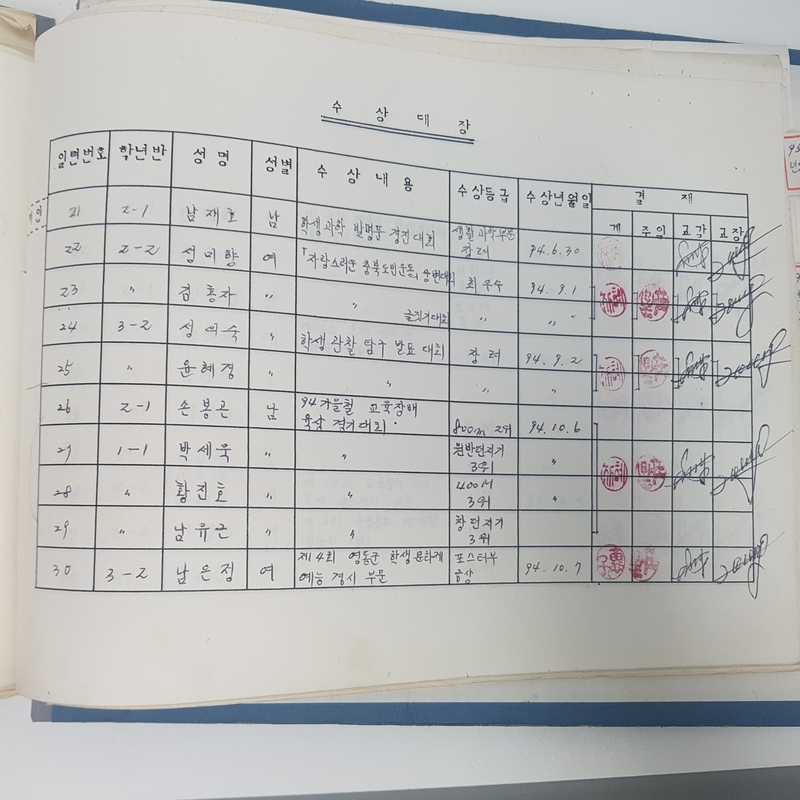 수 상 대 장
일련번호 학년반 성명 성별 수상내용 수상등급 수상년월일 결재
계 주임 교감 교장
21 2-1 남재호 남 학생과학 발명품 경진대회 생활과학부문
장려 94.6.30
22 2-2 성미향 여 「자랑스러운 충북도민운동」
23 〃 김홍자 〃 〃 최우수 94.9.1
글짓기대회
24 3-2 성의숙 〃 학생 관찰 탐구 발표 대회 장려 94.9.2
25 〃 윤혜경 〃 〃 〃 〃
26 2-1 손봉곤 남 94가을철 교육장배
육상 경기대회 800m 2위 94.10.6
27 1-1 박세욱 〃 〃 원반던지기
3위 〃
28 〃 황진호 〃 〃 400M
3위 〃
29 〃 남유근 〃 창던지기
3위
30 3-2 남은정 여 제4회 영동군 학생문화제 포스터부
예능 경시 부문 금상 94.10.7